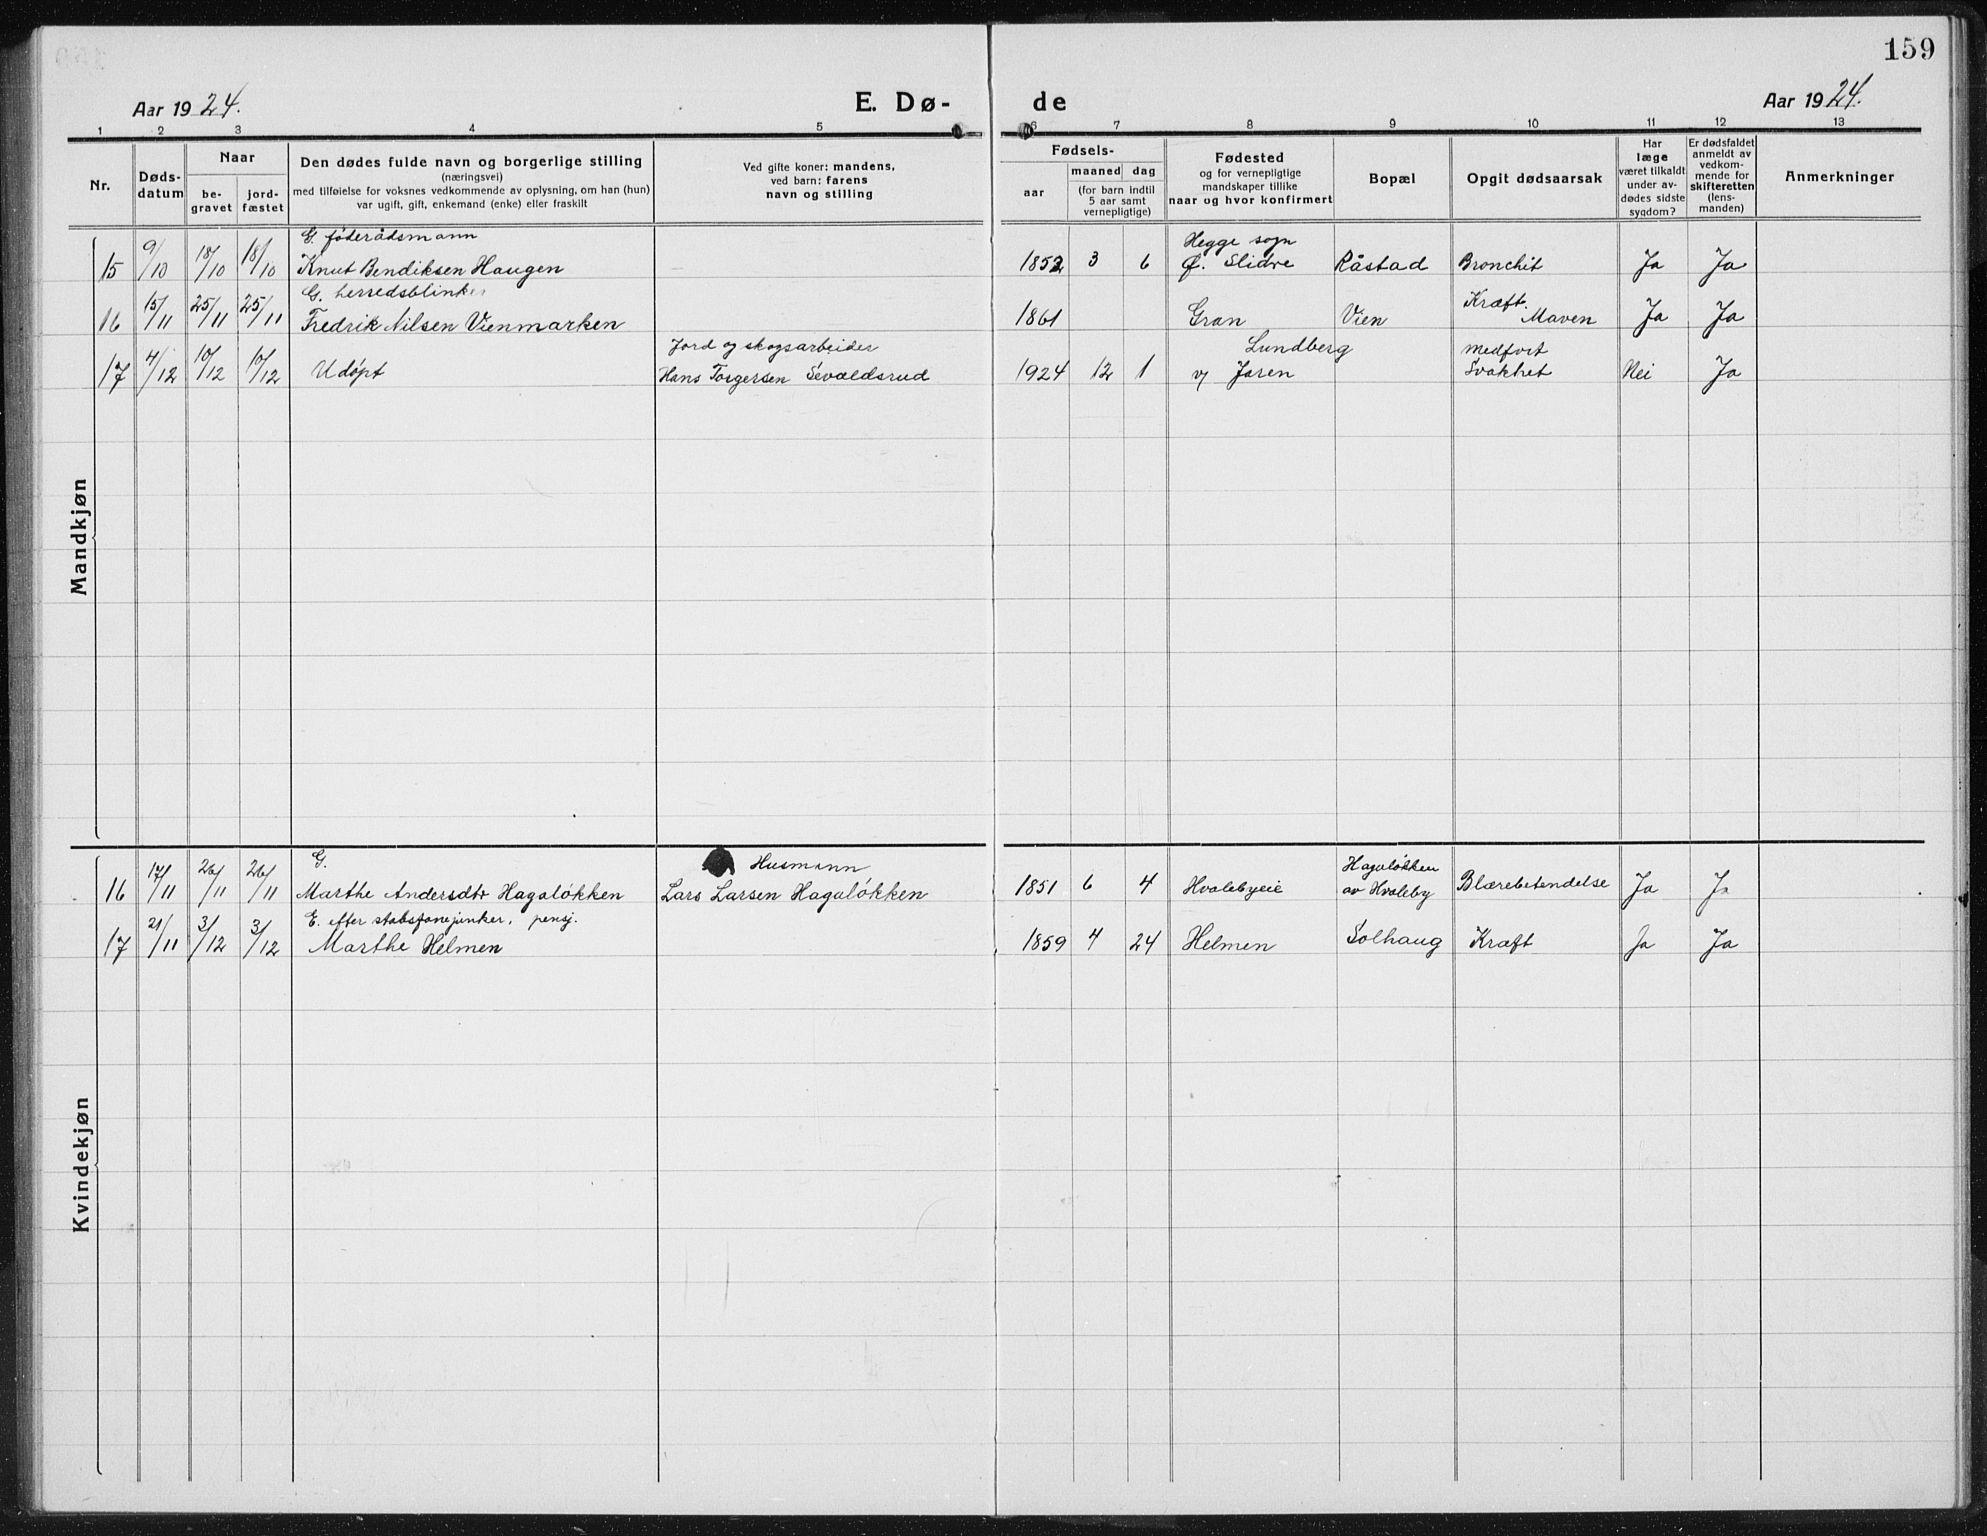 159
Aar 1924.
E. Dø-
de
Aar 1924.
1 2 3 4 5 6 7 8 9 10 11 12 13
Nr.
Døds-
datum
Naar
be-
gravet
jord-
fæstet
Den dødes fulde navn og borgerlige stilling
(næringsvei)
med tilføielse for voksnes vedkommende av oplysning, om han (hun)
var ugift, gift, enkemand (enke) eller fraskilt
Ved gifte koner: mandens,
ved barn: farens
navn og stilling
Fødsels-
aar
maaned dag
(for barn indtil
5 aar samt
vernepligtige)
Fødested
og for vernepligtige
mandskaper tillike
naar og hvor konfirmert
Bopæl
Opgit dødsaarsak
Har
læge
været tilkaldt
under av-
dødes sidste
sygdom?
Er dødsfaldet
anmeldt av
vedkom-
mende for
skifteretten
(lens-
manden)
Anmerkninger
Mandkjøn
G. föderådsmann Hegge sogn
15 9/10 18/10 18/10 Knut Bendiksen Haugen 1852 3 6 Ø. Slidre Råstad Bronchit Ja Ja
G. herredsblinker Kræft.
16 15/11 25/11 25/11 Fredrik Nilsen Vienmarken 1861 Gran Vien Maven Ja Ja
Jord og skogsarbeider Lundberg Medfört
17 4/12 10/12 10/12 Udöpt Hans Torgersen Sevaldsrud 1924 12 1 v/ Jaren Svakhet Nei Ja
Kvindekjøn
G. Husmann Hagalökken
16 17/11 26/11 26/11 Marthe Andersdtr Hagalökken Lars Larsen Hagalökken 1851 6 4 Hvalebyeie av Hvaleby Blærebetendelse Ja Ja
E. efter stabsfanejunker, pensj.
17 21/11 3/12 3/12 Marthe Helmen 1859 4 24 Helmen Solhaug Kræft Ja Ja